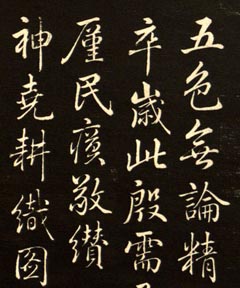 五色無論精
卒歲此殷需
厪民瘼敬纘
神堯耕織圖